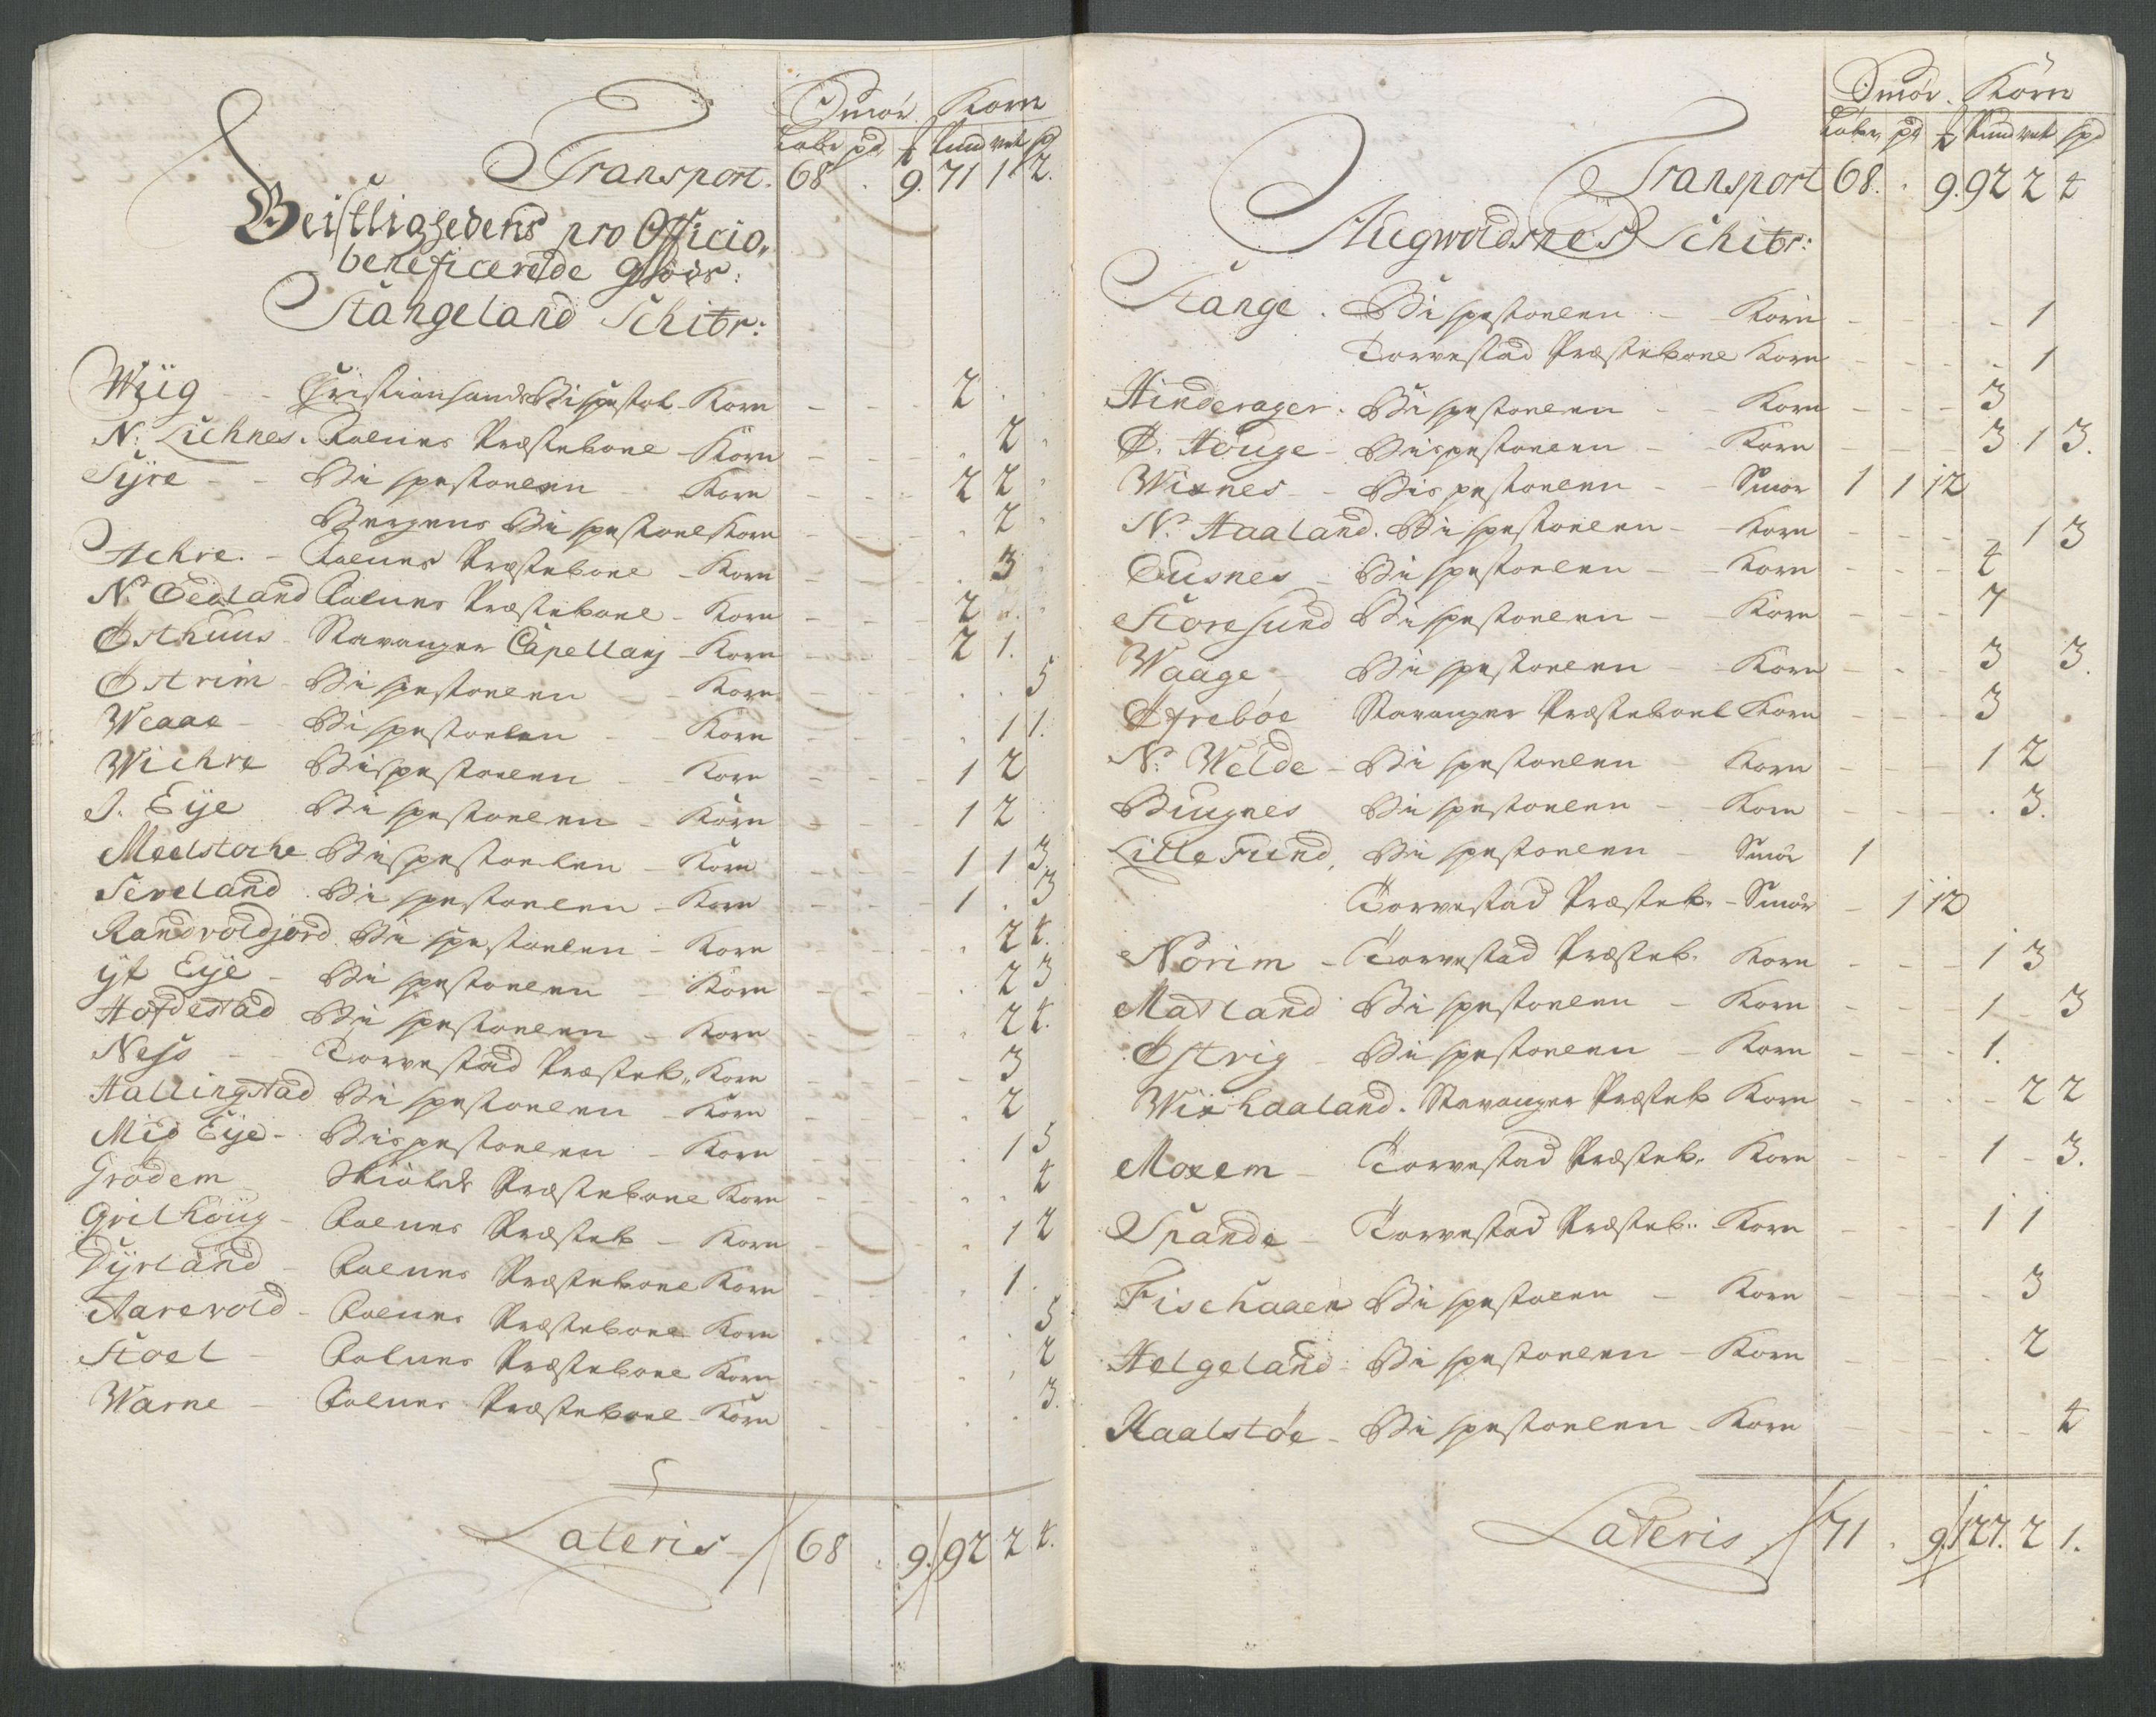 Smör. Korn
Løber pd ℔ Tund vet spd
Transport. 68 . 9. 71 1 2.
Geistlighedens pro Officio,,
beneficerede Gods:
Stangeland Schibr:
Wiig - - Christiansands Bispestol - Korn - - - 2 .
N: Liknes. Aalunes Præstebone - Korn - - - . 2 .
Syre - - Bispestoelenn - Korn - - - 2 2 .
Bergens Bispestoel Korn - - - . 2 .
Achre. - Aalunes Præstebone - Korn - - - . 3 .
N: Oedland Aalunes Præstebone - Korn - - - 2 . .
Østhuus - Stavanger Capellanj - Korn - - - 2 1.
Østrim - Bispestoelenn - - Korn - - - . . 5
Weaae - Bispestoelen - - Korn - - - . 1 1.
Wichre Bispestoelenn - - Korn - - - 1 2
I. Eije Bispestoelenn - Korn - - - 1 2
Meelstoche Bispestoelen - Korn - - - 1 1 3.
Seveland Bispestoelenn - Korn - - - 1 . 3
Randvoldjord Bispestoelenn - Korn - - . 2 4.
yt Eije - Bispestoelenn - Korn - - - . 2 3
Hofdestad Bispestoelenn - Korn - . 2 4.
Ness - - Torvestad Præsteb,, Korn - - - - 3
Hallingstad Bispestoelenn - Korn - - - . 2
Mid Eije - Bispestoelenn - Korn - - - . 1 5
Grødem Skiolds Præstebone Korn - - . . 4
Grithoug - Aalunes Præsteb - Korn - . 1 2
Dyrland - Aalunes Præstebone Korn - - . 1 .
Aarevold - Aalunes Præstebone Korn - - . . 5
Stoel - Aalunes Præstebone Korn - - - . 2
Warne - Aalunes Præstebone - Korn - - . . 3.
Lateris 68 . 9. 92 2 4.
Smör. Korn
Løber pd ℔ Tund vet spd
Transport 68. . 9. 92 2 4
Augwoldsnes Schibr:
Stange. Bispestoelenn - - Korn - - - - 1
Torvestad Præstebone Korn - - - . 1
Hinderager. Bispestoelenn - - Korn - - - 3
Ø. Houge - Bispestoelenn - - Korn - - - 3 1 3.
Wixnes - - Bispestoelenn - - Smør 1 1 12
N: Haaland. Bispestoelenn - - Korn - - - - 1 3
Ousnes - Bispestoelenn - - Korn - - - 4
Storesund Bispestoelenn - - Korn - - - 7
Waage - Bispestoelenn - - Korn - - - 3 3.
Øfrebøe Stavanger Præstebonl Korn - - - 3 .
N: Welde - Bispestoelenn - Korn - - - 1 2
Bugnes Bispestoelenn - - Korn - - - . 3.
Lille Sund, Bispestoelenn - Smør 1
Torvestad Præsteb. - Smør - 1 12
Norim - Torvestad Præsteb. Korn - - - 1 3
Matland Bispestoelenn - Korn - - - 1 - 3
Østrig - Bispestoelenn - Korn - - - 1.
Wixhaaland. Stavanger Præsteb Korn - - - - 2 2
Moxem - Torvestad Præsteb. Korn - - - 1 - 3.
Spande - Torvestad Præsteb.. Korn - - - 1 1
Fischaaen Bispestoelen - Korn - - - - 3
Helgeland: Bispestoelenn - Korn - - - . 2
Kaalstøe - Bispestoelenn - Korn - - - - - 4
Lateris 71 . 9. 127. 2 1.